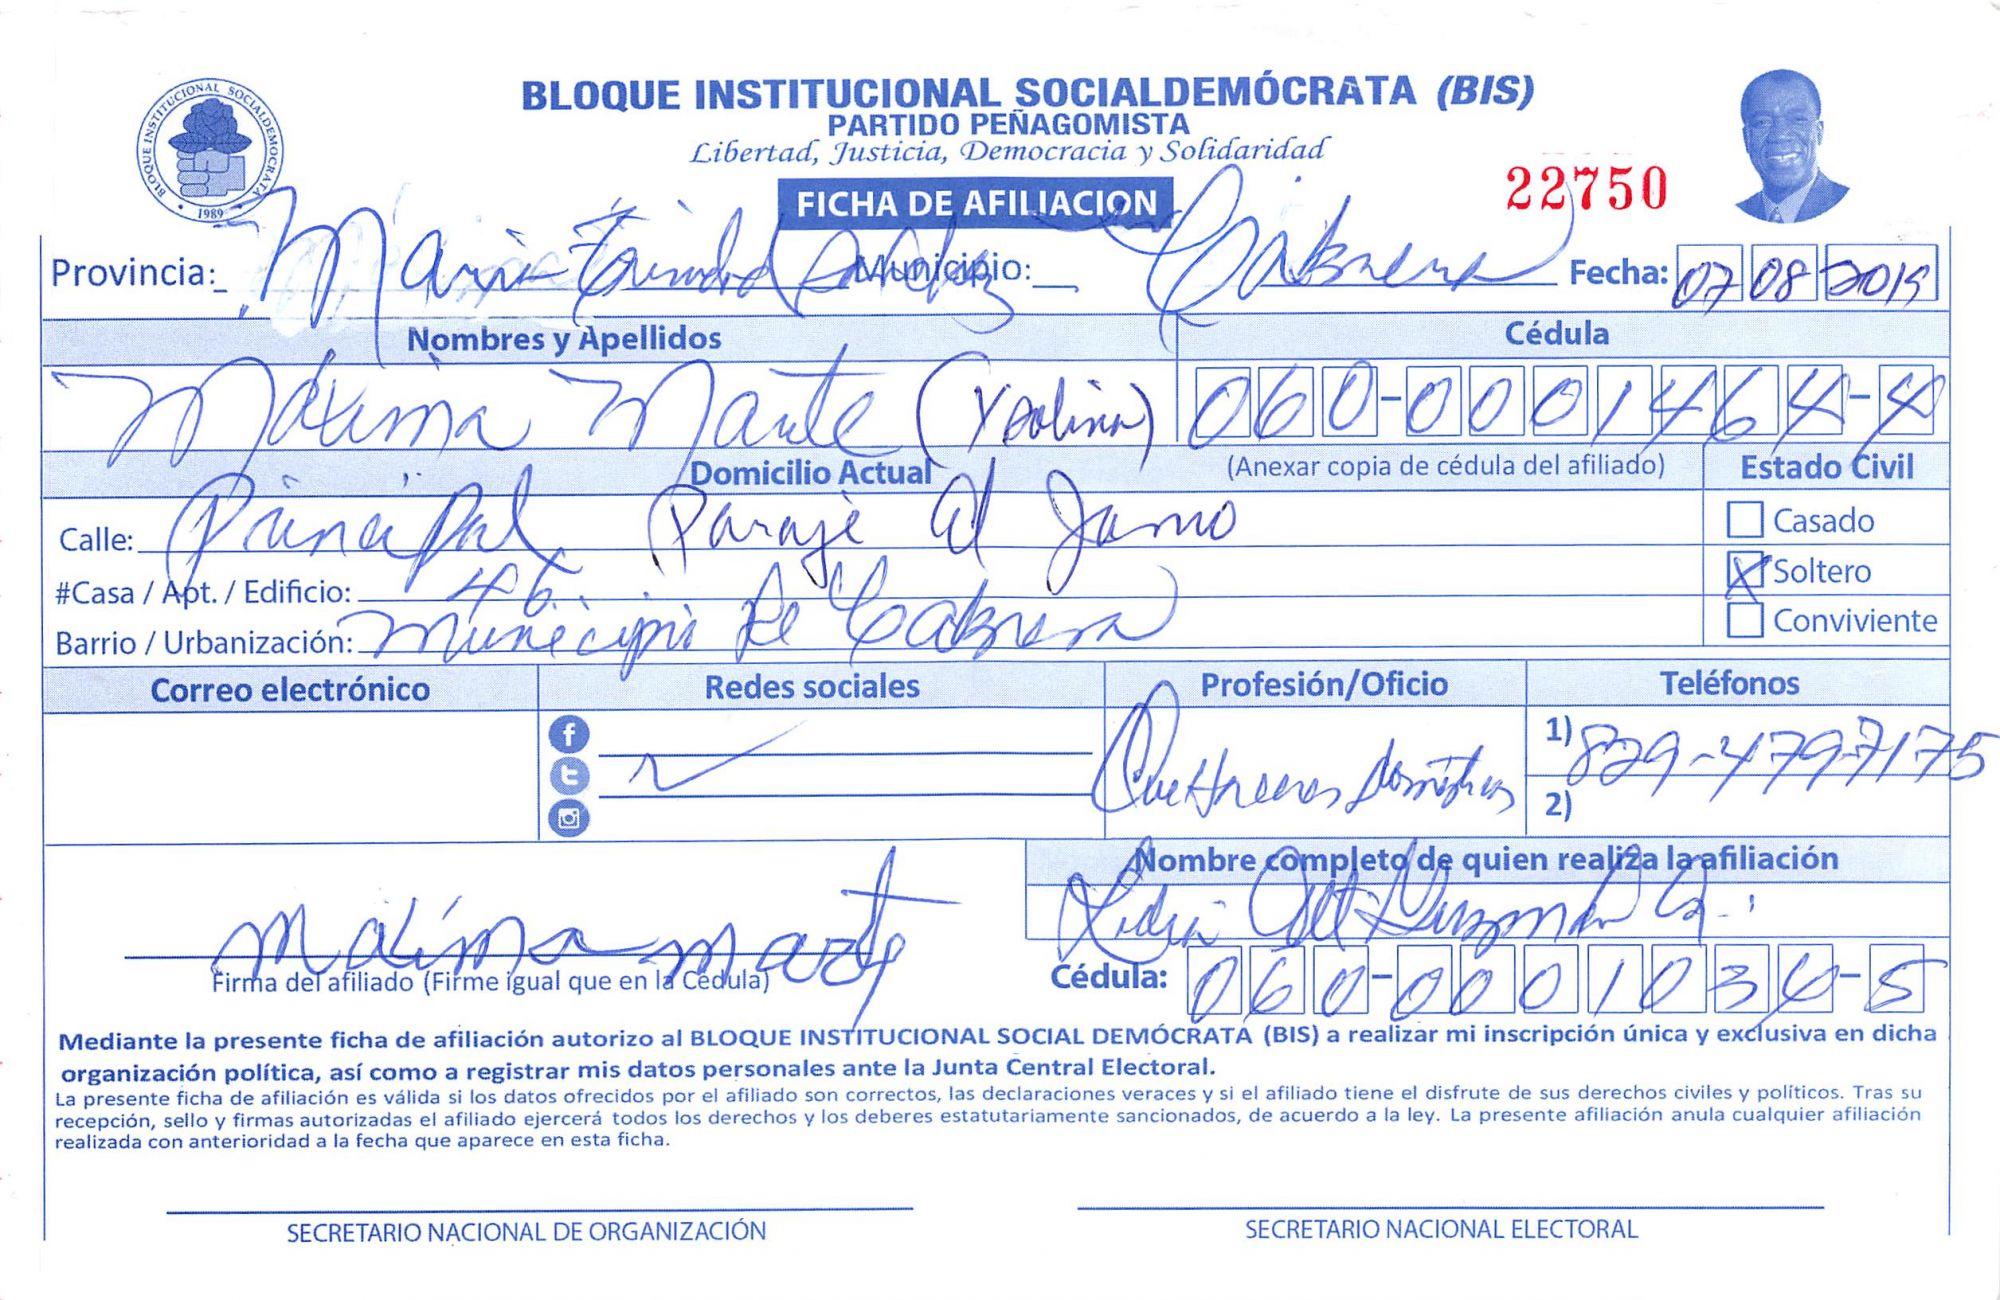 BLOQUE INSTITUCIONAL SOCIALDEMÓCRATA (BIS)
PARTIDO PEÑAGOMISTA
Libertad, Justicia, Democracia y Solidaridad
BLOQUE INSTITUCIONAL SOCIALDEMOCRATA
1989
FICHA DE AFILIACION
22750
Provincia: Maria Trinidad Sanchez Municipio: Cabrera Fecha: 07 08 2019
Nombres y Apellidos Cédula
Máxima Marte (Yeolina) 060-0001464-4
Domicilio Actual (Anexar copia de cédula del afiliado) Estado Civil
Calle: Principal Paraje El Jamo
Casado
#Casa / Apt. / Edificio: 46 X Soltero
Barrio / Urbanización: Municipio De Cabrera Conviviente
Correo electrónico Redes sociales Profesión/Oficio Teléfonos
1) 829-479-7175
Domésticos
2)
Nombre completo de quien realiza la afiliación
Lidia Alt Guzmán
Maxima marte
Firma del afiliado (Firme igual que en la Cédula) Cédula: 060-0001034-5
Mediante la presente ficha de afiliación autorizo al BLOQUE INSTITUCIONAL SOCIAL DEMÓCRATA (BIS) a realizar mi inscripción única y exclusiva en dicha
organización política, así como a registrar mis datos personales ante la Junta Central Electoral.
La presente ficha de afiliación es válida si los datos ofrecidos por el afiliado son correctos, las declaraciones veraces y si el afiliado tiene el disfrute de sus derechos civiles y políticos. Tras su
recepción, sello y firmas autorizadas el afiliado ejercerá todos los derechos y los deberes estatutariamente sancionados, de acuerdo a la ley. La presente afiliación anula cualquier afiliación
realizada con anterioridad a la fecha que aparece en esta ficha.
SECRETARIO NACIONAL DE ORGANIZACIÓN SECRETARIO NACIONAL ELECTORAL